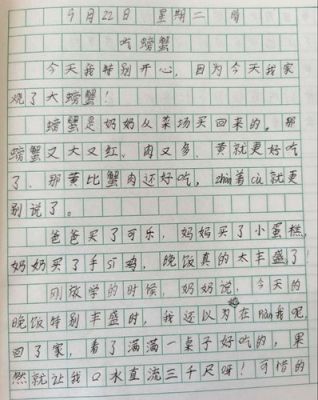 9月22日 星期二 晴
吃螃蟹
今天我特别开心，因为今天我家
烧了大螃蟹！
螃蟹是奶奶从菜场买回来的。那
螃蟹又大又红、肉又多、黄就更好吃
了，那黄比蟹肉还好吃，zhàn着cù就更
别说了。
爸爸买了可乐，妈妈买了小蛋糕，
奶奶买了手sī鸡，晚饭真的太丰盛了！
刚放学的时候，奶奶说，今天的
晚饭特别丰盛时，我还以为在piàn我呢，
回了家，看了满满一桌子好吃的，果
然就让我口水直流三千尺呀！可惜的